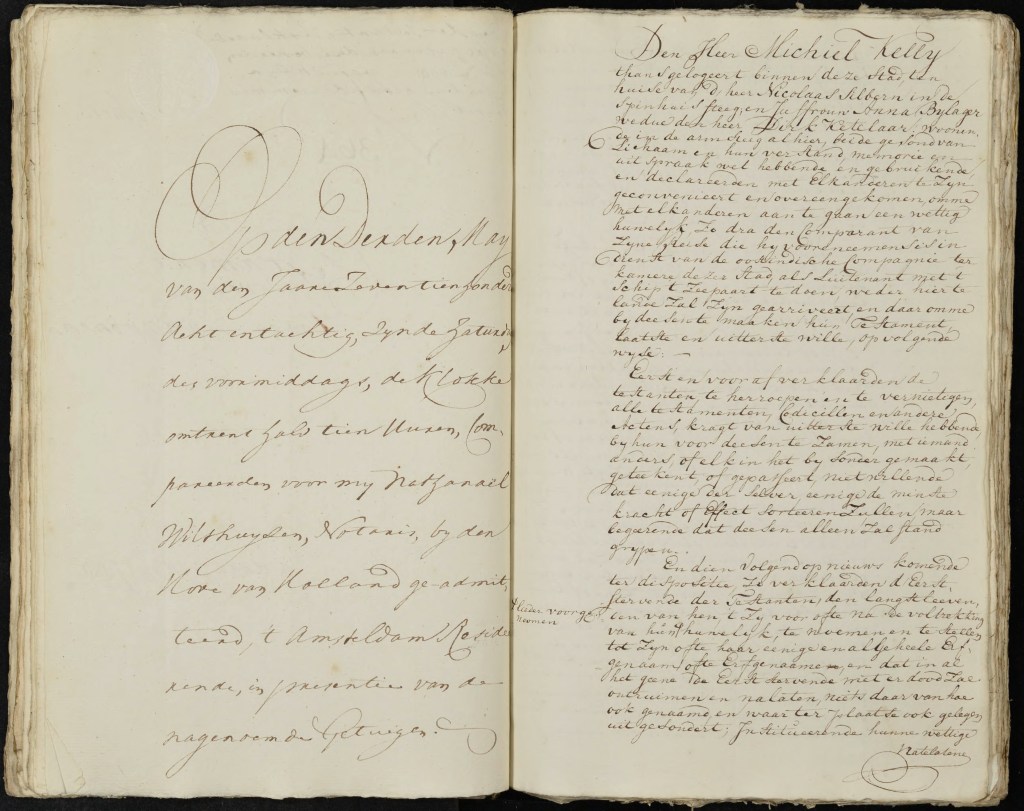 Op den Derden May
van den Jaare Zeventienhonderd
Acht entachtig, Zynde Zaturdag
des voormiddags, de Klokke
omtrent half tien Uuren, Com-
pareerden voor my Nathanael
Wilthuysen, Notaris, by den
Hove van Holland ge-admit-
teerd, t' Amsteldam Reside-
rende, in presentie van de
nagenoemde Getuigen.
Den Heer Michiel Kelly
thans gelogeert binnen deze Stad, ten
huise van d' heer Nicolaas Silbern in de
Spinhuis steeg; en Juffrouw Anna Bylager
wedue den heer Dirk Ketelaar, woonen-
de in de arm steeg alhier, beide gesond van
Lichaam en hun verstand, memorie en
uit spraak wel hebbende en gebruikende,
en declareerden met Elkanderen te Zyn
geconvenieert en overeengekomen, omme
met elkanderen aan te gaan een wettig
huwelyk, Zo dra den Comparant van
Zyne Reise die hy voorneemens is in
dienst van de oostindische Compagnie ter
kamere dezer Stad als Luitenant met t
Schip t Zeepaart te doen, weder hier te
lande Zal Zyn gearriveert, en daar omme
by deesente maaken hun Testament,
laatste en uitterste wille, op volgende
wyse. —
Eerst en vooraf verklaarden de
testanten te herroepen en te vernietigen,
alle testamenten, Codicillen en andere
Actens, kragt van uitterste wille hebbende,
by hun voor deesen te Zamen, met iemand
anders, of elk in het by sonder gemaakt,
geteekent, of gepasseert, niet willende
dat eenige der selver, eenige de minste
kracht of Effect sorteeren Zullen, maar
begeerende dat deesen alleen Zal stand
grypen.
En dien Volgend op nieuws komende
ter dispositie, Zo verklaarden d' Eerst
stervende der Testanten, den langstleeven-
een van hen, t Zy voor ofte na de voltrekking
van hun huwelyk, te noemen en te stellen
tot Zyn ofte haar eenige en algeheele Erf-
genaam ofte Erfgenaame, en dat in al
het geene de Eerst stervende met er dood Zal
ontruimen en nalaten, niets daar van hoe
ook genaamd, en waar ter plaatse ook gelegen
uit gesondert; Institueerende hunne wettige
voorge-
nomen